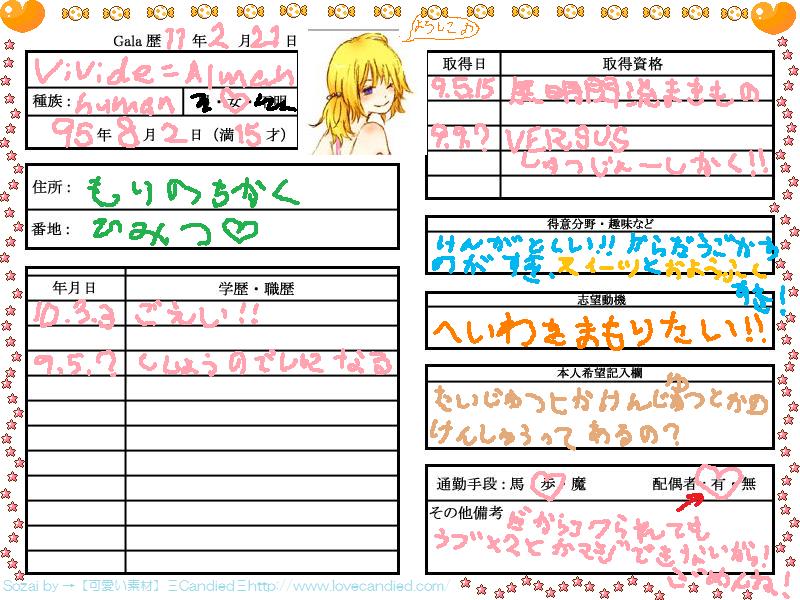 ようしこ♪
Gala 歴 11 年 2 月 21 日
ViVide=Alman
種族：human
女
95 年 8 月 2 日（満 15 才）
住所：もりのちかく
番地：ひみつ♡
年月日 学歴・職歴
10.3.2 ごえい!!
9.5.7 ししょうのでしになる
取得日 取得資格
9.5.15 無明閃 巻きもの
9.9.7 VERSUS
しゅつじんーしかく!!
得意分野・趣味など
けんがとくい!! からだうごかす
のがすき。スイーツとかようふく
すき!
志望動機
へいわをまもりたい!!
本人希望記入欄
たいじゅつとかけんじゅつとかの
けんしゅうってあるの?
通勤手段：馬・歩・魔 配偶者・有・無
その他備考
だからコクられても
うプ××2とかマジできないから!
ごめんね!
Sozai by →【可愛い素材】ミCandiedミhttp://www.lovecandied.com/